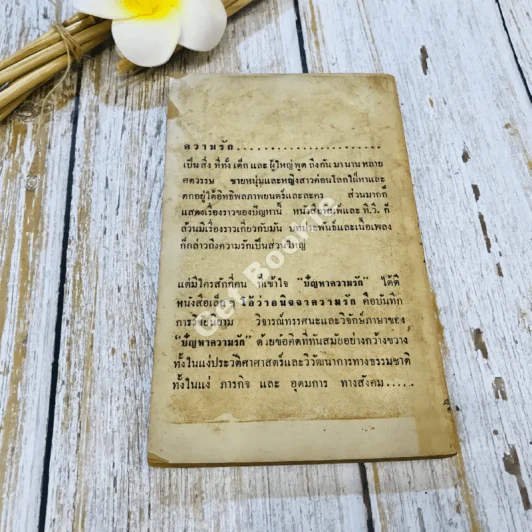 ความรัก......................
เป็นสิ่ง ที่ทั้ง เด็ก และ ผู้ใหญ่ พูด ถึงกัน มานาน หลาย
ศตวรรษ ชายหนุ่มและหญิงสาวค่อนโลกใฝ่หาและ
ตกอยู่ใต้อิทธิพลภาพยนตร์และละคร ส่วนมากก็
แสดงเรื่องราวของปัญหานี้ หนังสือพิมพ์และ ที.วี. ก็
ล้วนมีเรื่องราวเกี่ยวกับมัน บทประพันธ์และเนื้อเพลง
ก็กล่าวถึงความรักเป็นส่วนใหญ่
แต่มีใครสักกี่คน ที่เข้าใจ "ปัญหาความรัก" ได้ดี
หนังสือเล็ก ๆ ได้ว่าอนิจจาความรัก คือบันทึก
การวิจัยนิยาม วิจารณ์ทรรศนะและวิจักษ์ภาษาของ
"ปัญหาความรัก" ด้วยข้อคิดที่ทันสมัยอย่างกว้างขวาง
ทั้งในแง่ประวัติศาศาสตร์และวิวัฒนาการทางธรรมชาติ
ทั้งในแง่ ภารกิจ และ อุดมการ ทางสังคม.....